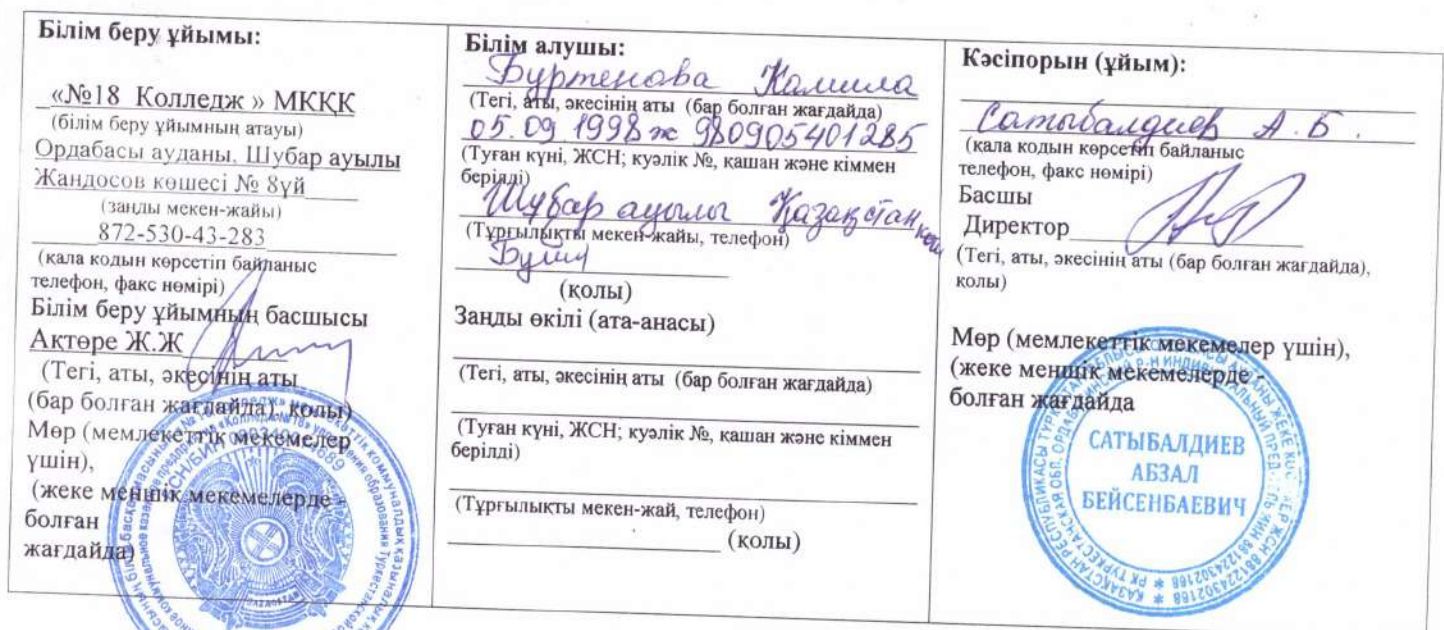 Білім беру ұйымы:
«№18 Колледж » МКҚК
(білім беру ұйымның атауы)
Ордабасы ауданы, Шубар ауылы
Жандосов көшесі № 8үй
(заңды мекен-жайы)
872-530-43-283
(кала кодын көрсетіп байланыс
телефон, факс нөмірі)
Білім беру ұйымның басшысы
Ақтөре Ж.Ж
(Тегі, аты, әкесінің аты
(бар болған жағдайда), қолы)
Мөр (мемлекеттік мекемелер
үшін),
(жеке меншік мекемелерде -
болған
жағдайда)
Білім алушы:
Буртенова Камила
(Тегі, аты, әкесінің аты (бар болған жағдайда)
05.09 1998 ж 980905401285
(Туған күні, ЖСН; куәлік №, қашан және кіммен
берілді)
Шубар ауылы Қазақстан көш
(Тұрғылықты мекен-жайы, телефон)
(қолы)
Заңды өкілі (ата-анасы)
(Тегі, аты, әкесінің аты (бар болған жағдайда)
(Туған күні, ЖСН; куәлік №, қашан және кіммен
берілді)
(Тұрғылықты мекен-жай, телефон)
(қолы)
Кәсіпорын (ұйым):
Сатыбалдиев А.Б.
(кала кодын көрсетіп байланыс
телефон, факс нөмірі)
Басшы
Директор
(Тегі, аты, әкесінің аты (бар болған жағдайда),
қолы)
Мөр (мемлекеттік мекемелер үшін),
(жеке меншік мекемелерде -
болған жағдайда
САТЫБАЛДИЕВ
АБЗАЛ
БЕЙСЕНБАЕВИЧ